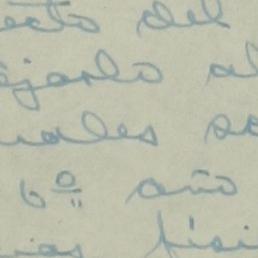 ecto del
ejarlo al
uales so
6º año
ias físi